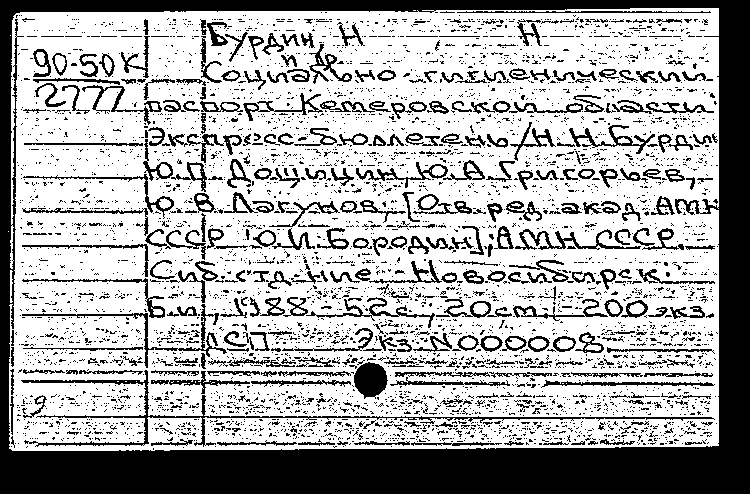 Бурдин, Н Н
и др.
90-50К
2777
Социально-гигиенический
паспорт Кемеровской области:
Экспресс-бюллетень / Н. Н. Бурдин
Ю. П. Дощицин, Ю. А. Григорьев,
Ю. В. Лагунов; [Отв. ред. акад. АМН
СССР Ю. И. Бородин]; АМН СССР.
Сиб. отд-ние. - Новосибирск:
Б.и., 1988. - 52 с., 20 см. - 200 экз.
ДСП Экз. N000008.
9